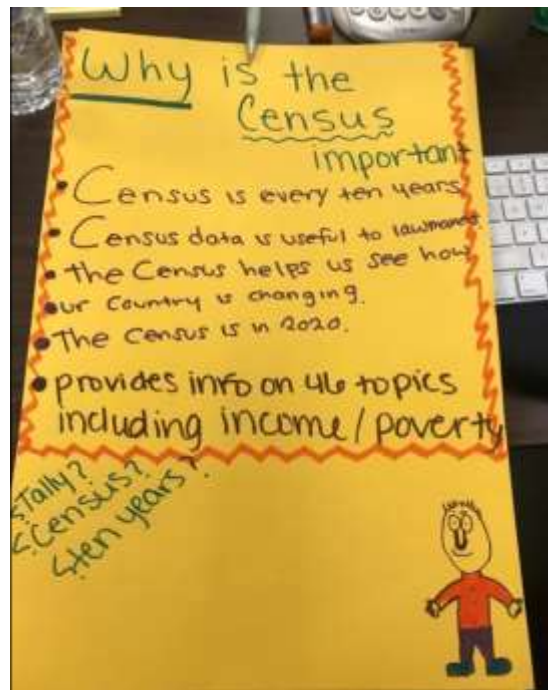 Why is the
Census
important
• Census is every ten years
• Census data is useful to lawmakers.
• the Census helps us see how
• our Country is changing.
• The Census is in 2020.
• provides info on 46 topics
including income / poverty
Tally?
Census?
ten years?